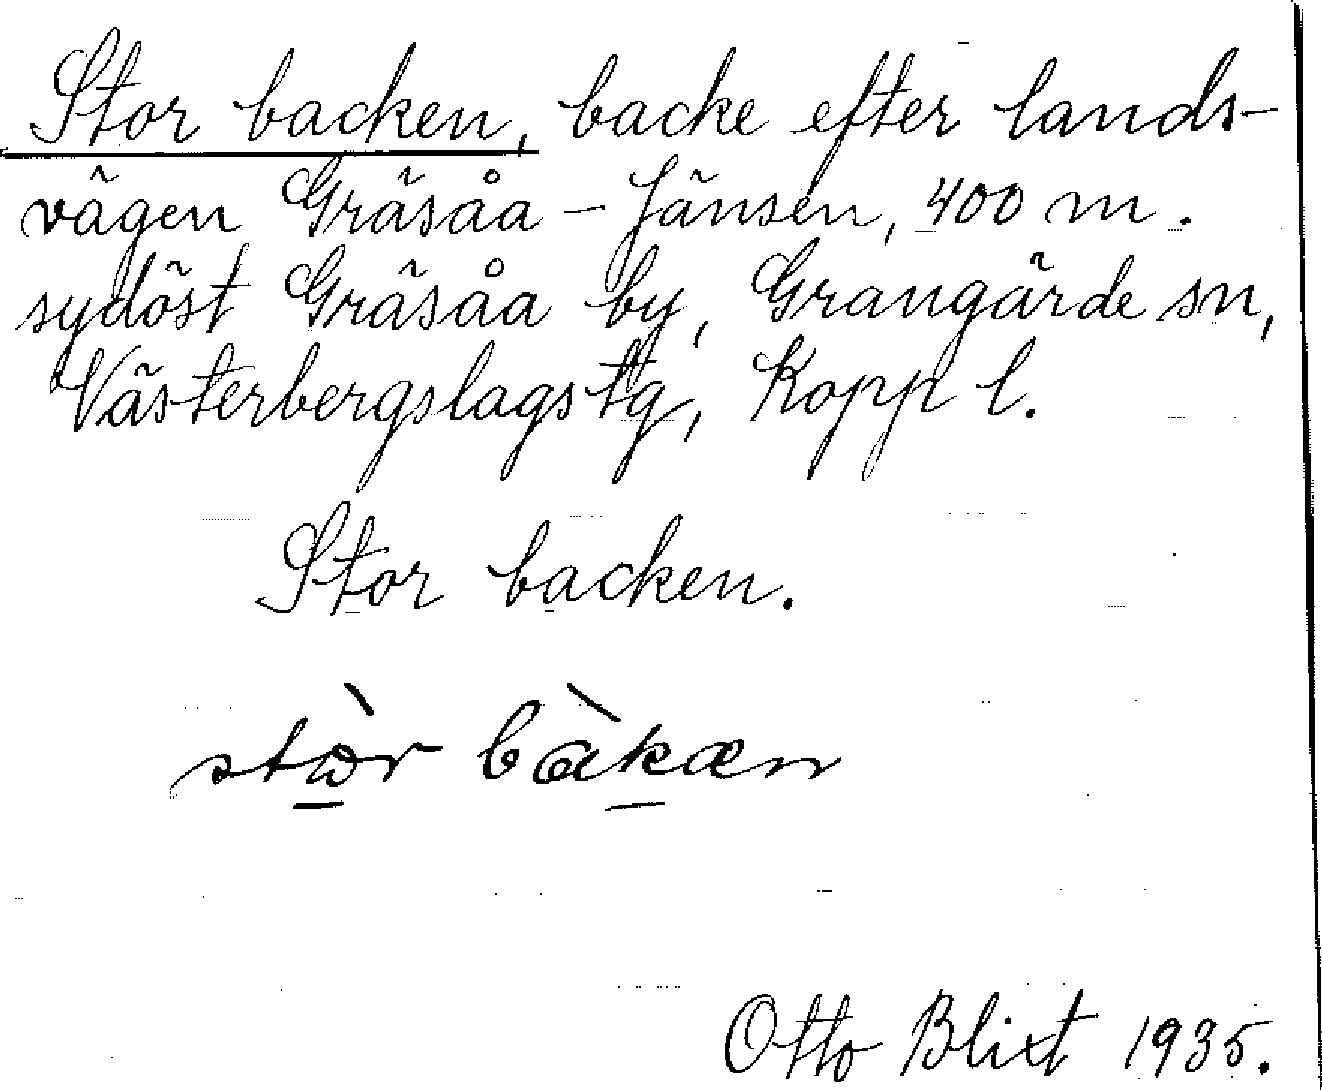 Stor backen, backe efter lands-
vägen Gräsåa - Jänsen, 400 m.
sydöst Gräsåa by, Grangärde sn,
Västerbergslags tg, Kopp l.
Stor backen.
stὼr bàkæn
Otto Blixt 1935.